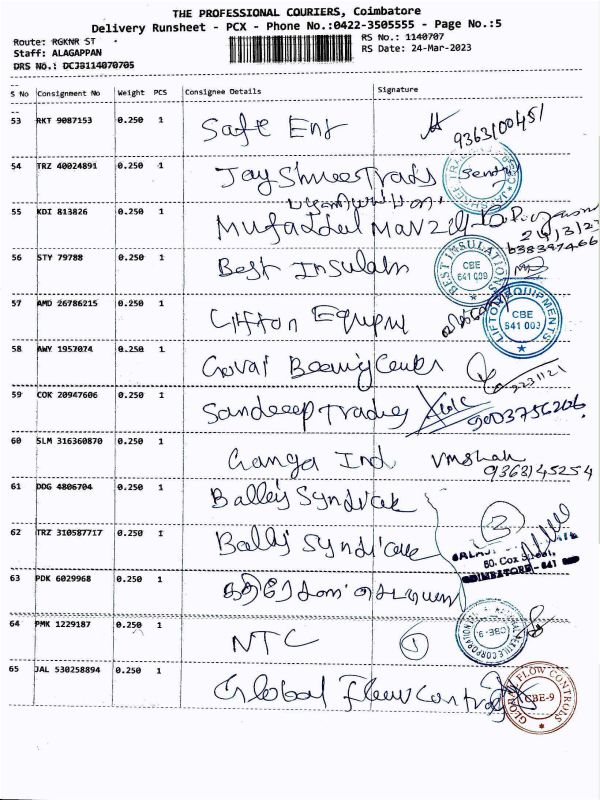 THE PROFESSIONAL COURIERS, Coimbatore
Delivery Runsheet - PCX - Phone No.:0422-3505555 - Page No.:5
Route: RGKNR ST
RS No.: 1140707
Staff: ALAGAPPAN
RS Date: 24-Mar-2023
DRS No.: DCJB114070705
S No Consignment No Weight PCS Consignee Details Signature
53 RKT 9087153 0.250 1 Safe Ent 9363100451
54 TRZ 40024891 0.250 1 Jay Shree Trads
55 KDI 813826 0.250 1 Mufaddal Marzely
24/3/23
56 STY 79788 0.250 1 Best Insulatn
BEST INSULATIONS CBE 641 009
57 AMD 26786215 0.250 1 Lifton Equipm
LIFTON EQUIPMENTS CBE 641 003
58 AWY 1957074 0.250 1 Goval Bearing Center
2231121
59 COK 20947606 0.250 1 Sandeep Trading
60 SLM 316360870 0.250 1 Ganga Ind Vmshah
9363145254
61 DDG 4806704 0.250 1 Balleys Syndicate
62 TRZ 310587717 0.250 1 Balleys Syndicate 2
60, Cox Street,
COIMBATORE - 641
63 PDK 6029968 0.250 1
64 PMK 1229187 0.250 1 NTC 1
CBE-9
65 JAL 530258894 0.250 1 Global Flow Control
GLOBAL FLOW CONTROLS CBE-9